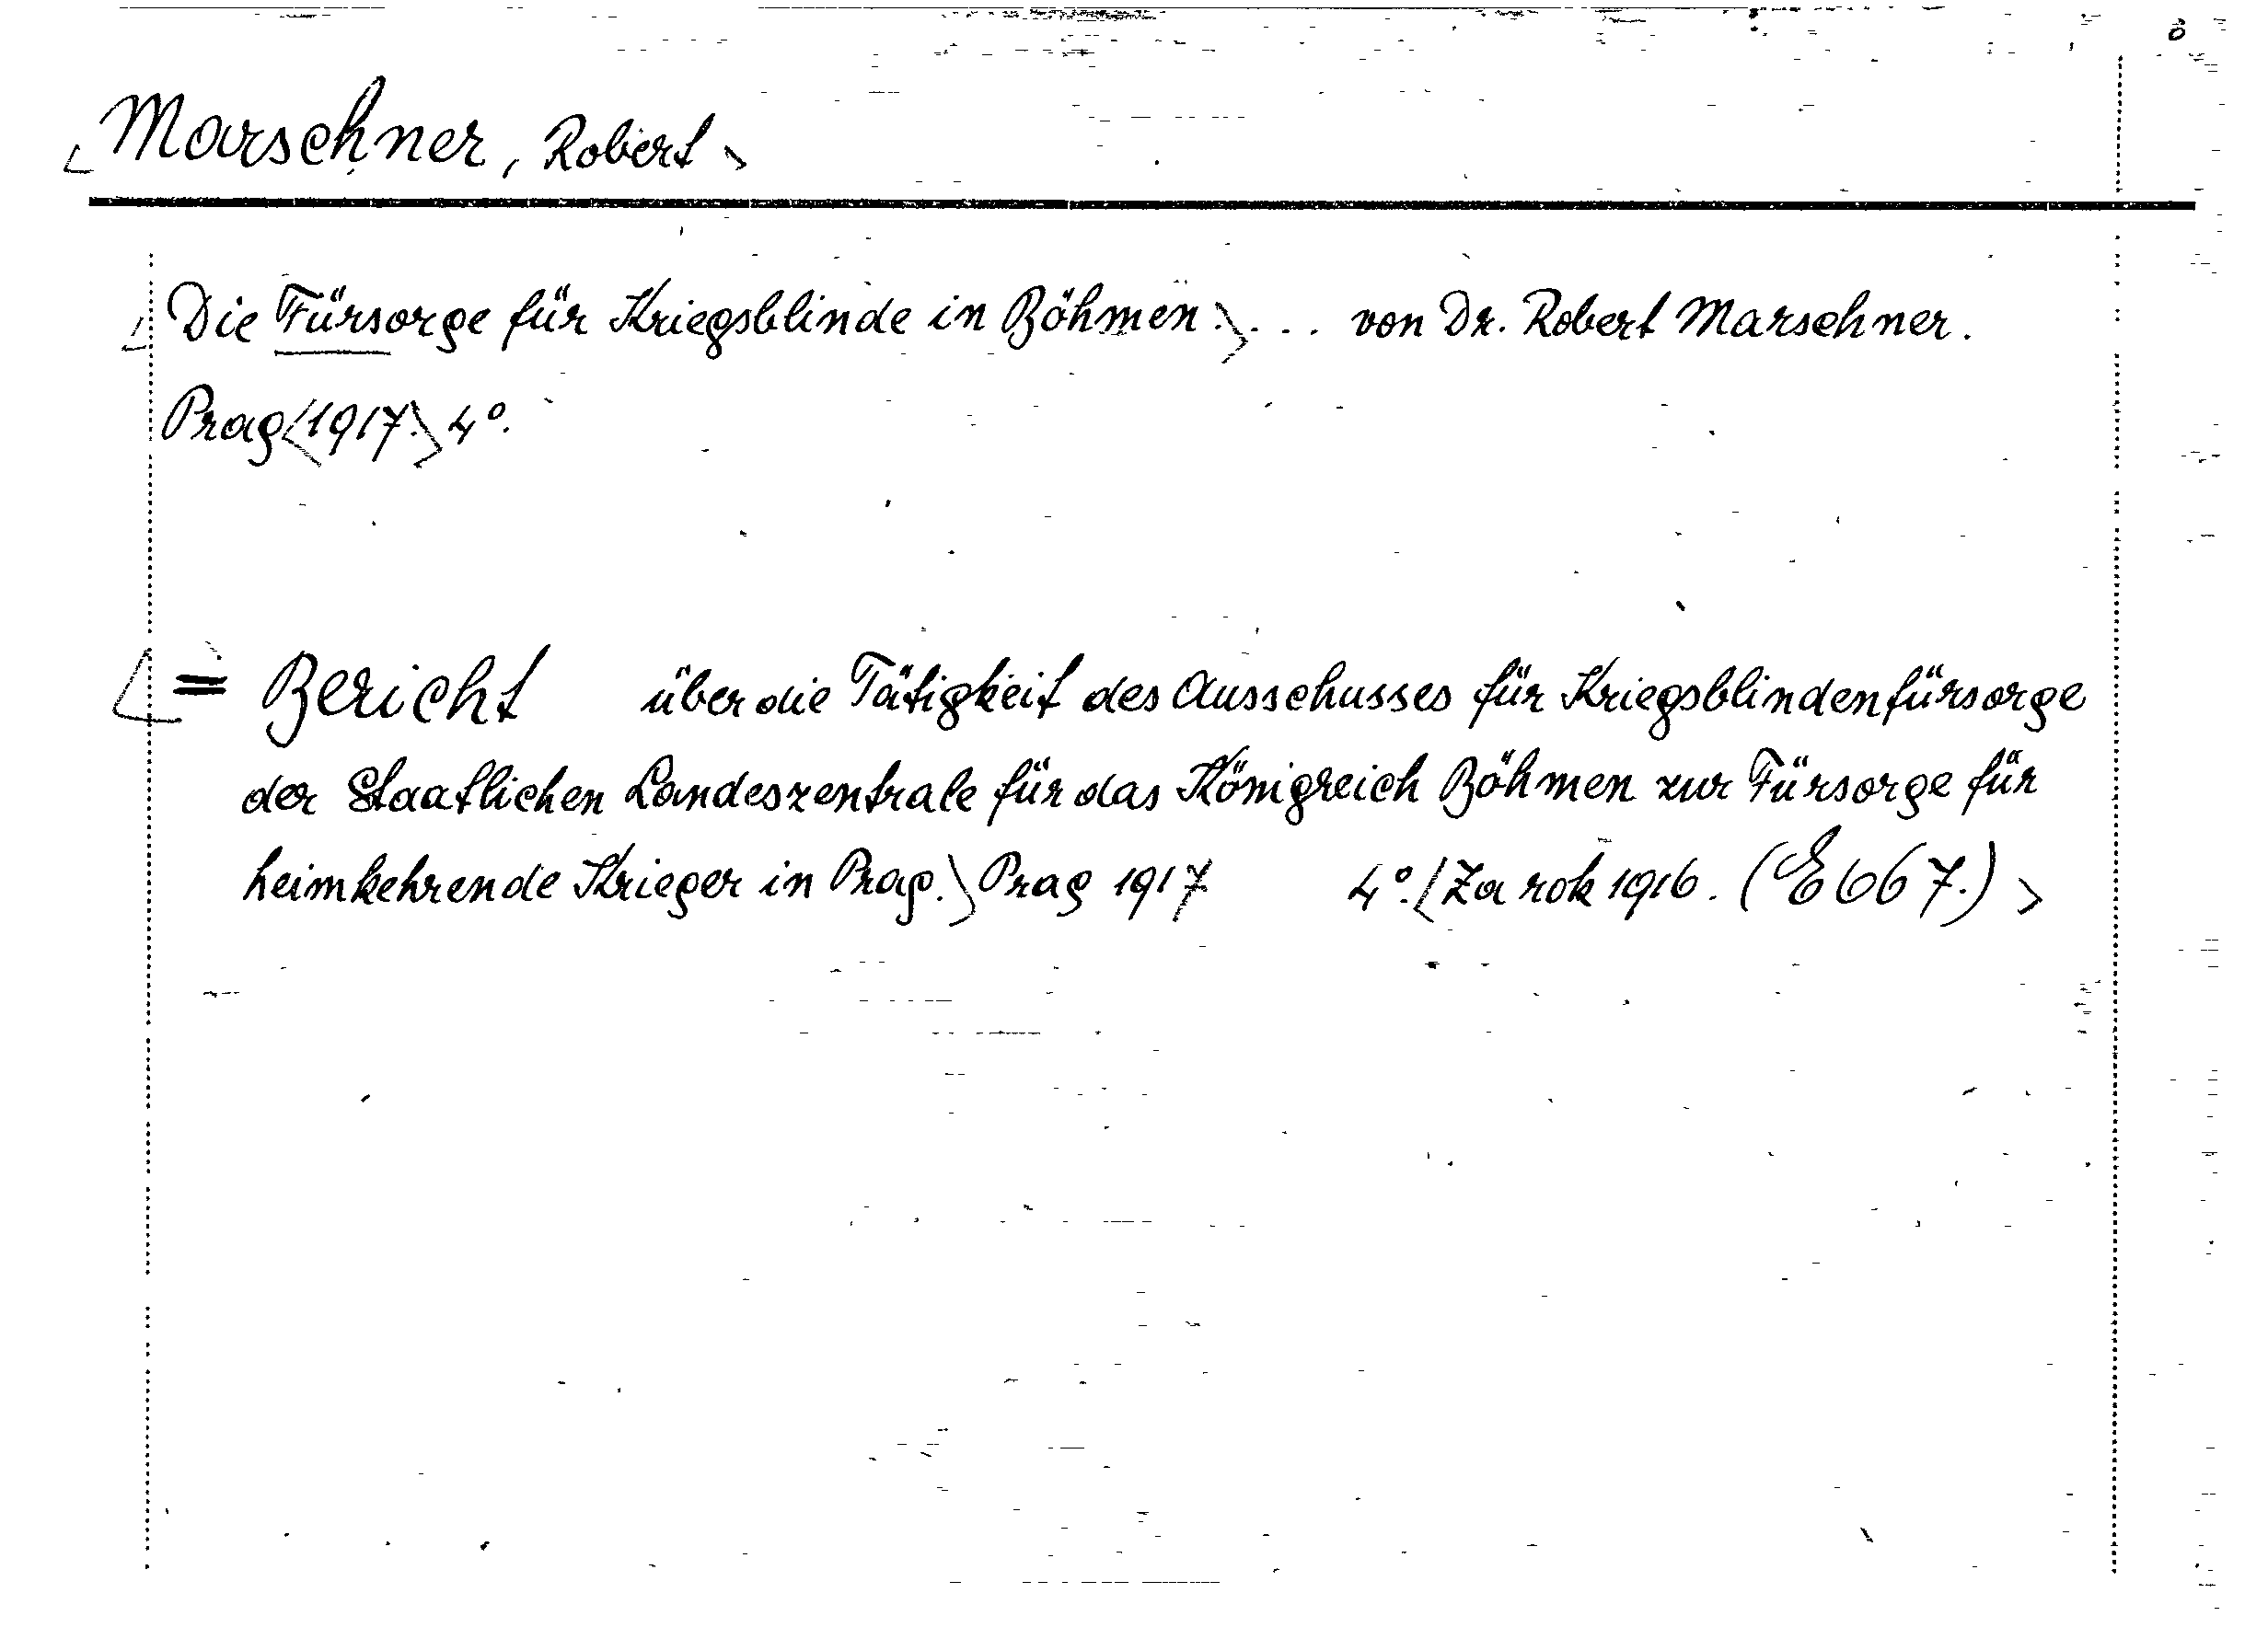 <Marschner, Robert>
<Die Fürsorge für Kriegsblinde in Böhmen.> ... von Dr. Robert Marschner.
Prag <1917.> 4°.
<= Bericht über die Tätigkeit des Ausschusses für Kriegsblindenfürsorge
der Staatlichen Landeszentrale für das Königreich Böhmen zur Fürsorge für
heimkehrende Krieger in Prag.> Prag 1917 4°. <Za rok 1916. (E 667.)>